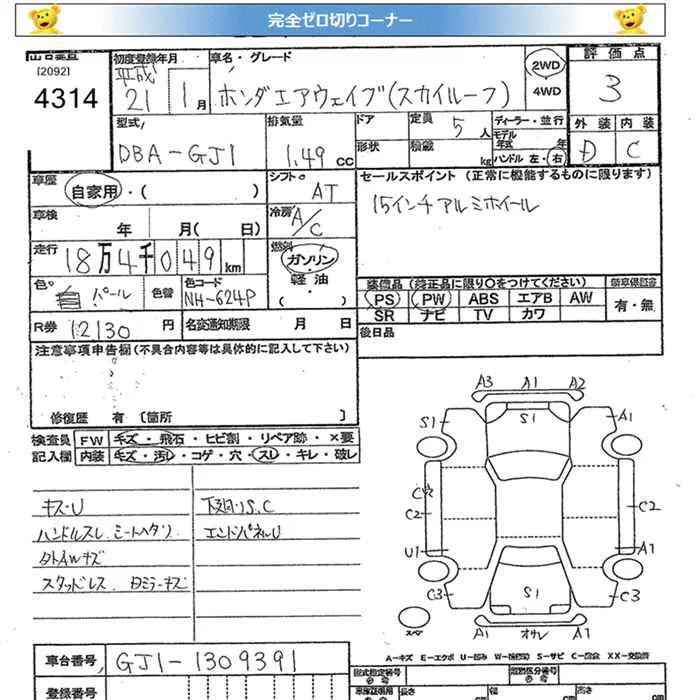 完全ゼロ切りコーナー
[2092]
4314
初度登録年月
平成
21 1月
車名・グレード
ホンダエアウェイブ(スカイルーフ)
2WD
4WD
評価点
3
型式
DBA-GJ1
排気量
1.49 cc
ドア
形状
定員 5 人
積載 kg
ディーラー・並行
モデル年式 年
ハンドル 左・右
外装 内装
D C
車歴
自家用・( )
シフト
AT
車検
年 月( 日)
冷房
A/C
セールスポイント (正常に機能するものに限ります)
15インチアルミホイール
走行
18万4千049km
燃料
ガソリン
軽油
( )
色
パール
色替
色コード
NH-624P
装備品 (純正品に限り○をつけてください)
PS PW ABS エアB AW
SR ナビ TV カワ
新車保証書
有・無
R券 12130 円
名変通知期限 月 日
後日品
注意事項申告欄 (不具合内容等は具体的に記入して下さい)
修復歴 有 〔箇所 〕
検査員 FW キズ・飛石・ヒビ割・リペア跡・×要
記入欄 内装 キズ・汚レ・コゲ・穴・スレ・キレ・破レ
キズ・U
ハンドルスレ シートヘタリ
タトAWキズ
スタッドレス
下廻りS.C
エンドパネルU
A3 A1 A2
S1 S1 A1
C2 C2
C2
U1 A1
C3 S1 C3
スペア
A1 A1
A-キズ E-エクボ S-サビ XX-交換済
車台番号
GJ1-1309391
登録番号
型式指定番号
類別区分番号
長さ cm
幅 cm
高さ cm